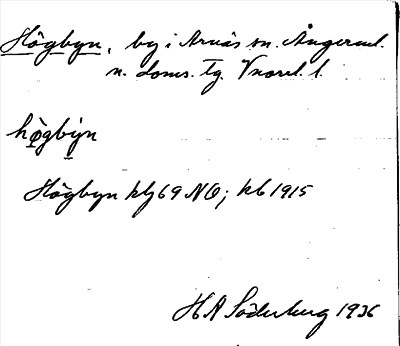 Högbyn, by i Arnäs sn. Ångerml.
n. doms. tg. Vnorrl. l.
högbyn
Högbyn klj 69 NO; kb 1915
H A Söderberg 1936